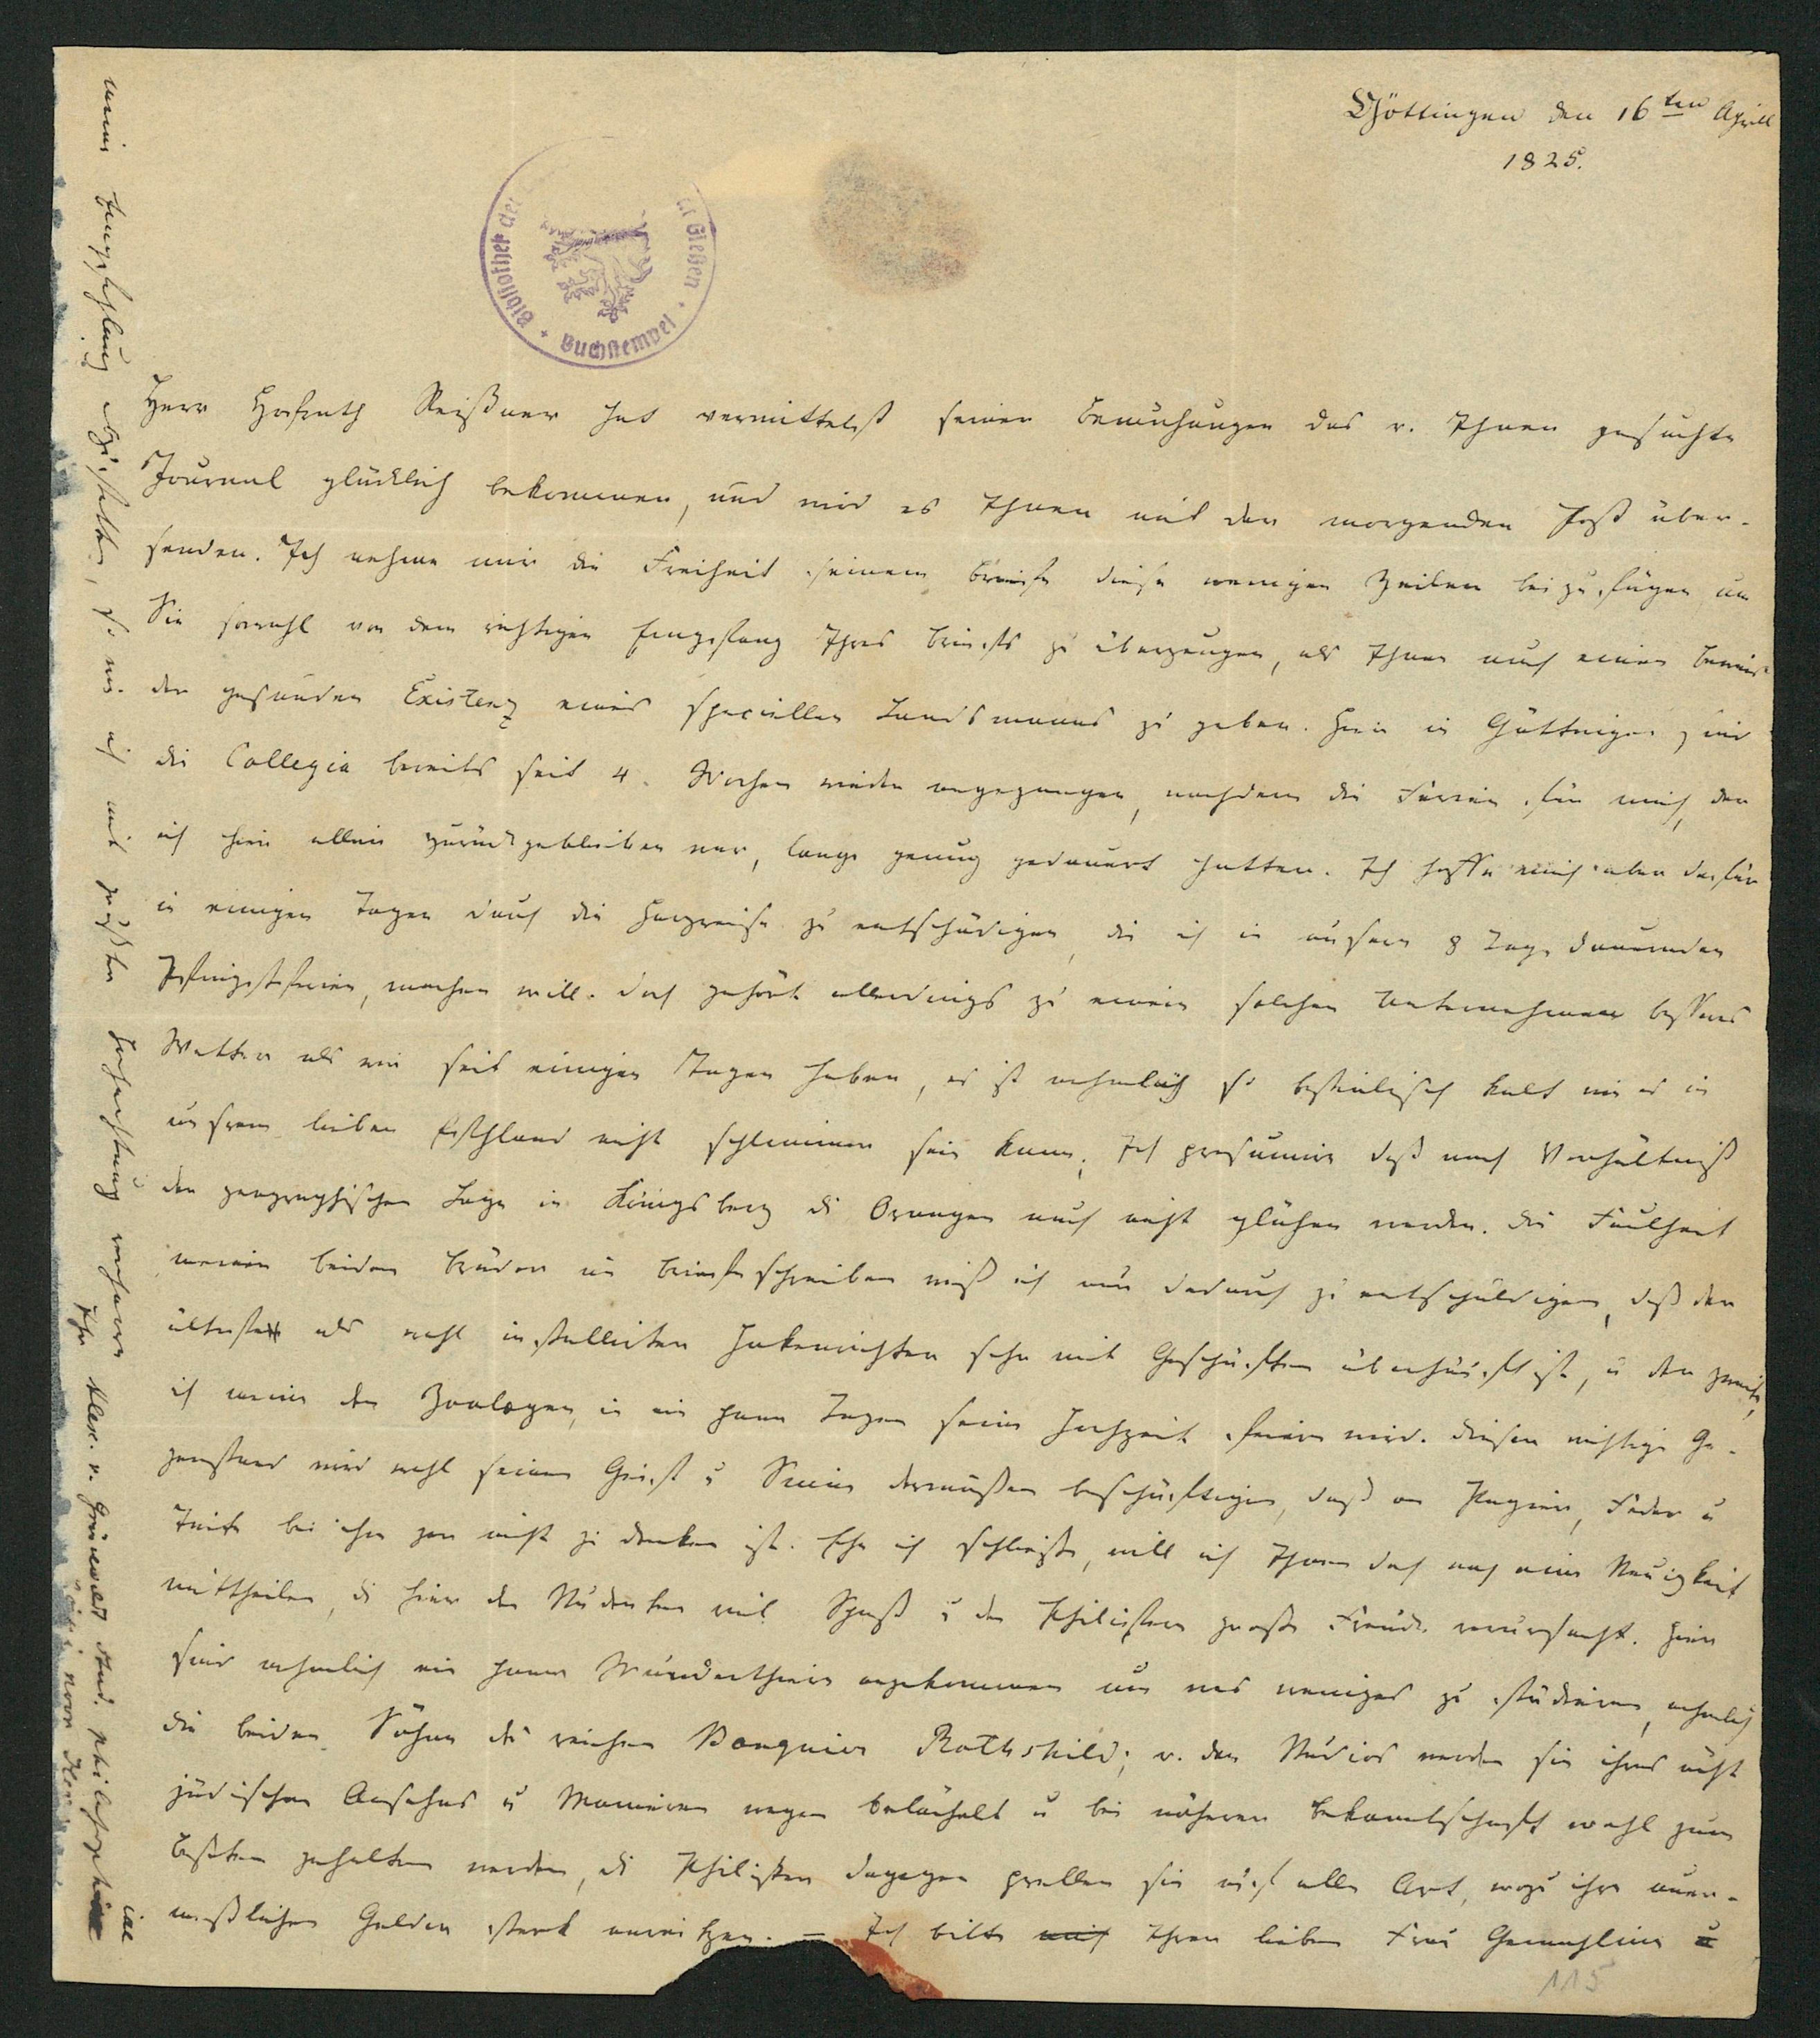 Göttingen den 16ten Aprill
1825.
Bibliothek der
Gießen
Buchstempel
Herr Hofrath Reißner hat vermittelst seiner Bemühungen das v. Ihnen gesuchte
Journal glücklich bekommen, und wird es Ihnen mit der morgenden Post über-
senden. Ich nehme mir die Freiheit seinem Briefe diese wenigen Zeilen beizufügen um
Sie sowohl von dem richtigen Empfang Ihres Briefs zu überzeugen, als Ihnen auch einen Beweis
der gesunden Existenz eines speciellen Landsmanns zu geben. Hier in Göttingen sind
die Collegia bereits seit 4. Wochen wieder angegangen, nachdem die Ferien für mich, der
ich hier allein zurückgeblieben war, lange genug gedauert hatten. Ich hoffe mich aber dafür
in einigen Tagen durch die Harzreise zu entschädigen, die ich in unsern 8 Tage dauernden
Pfingstferien, machen will. Doch gehört allerdings zu einem solchen Unternehmen besseres
Wetter als wir seit einigen Tagen haben, es ist nehmlich so bestialisch kalt wie es in
unserm lieben Esthland nicht schlimmer sein kann. Ich presumire daß nach Verhältniß
der geographischen Lage in Königsberg di Orangen auch nicht glühen werden. Die Faulheit
meiner beiden Brüder im Briefeschreiben weiß ich nur dadurch zu entschuldigen, daß der
älteste als wohl installirter Hakenrichter sehr mit Geschäften überhäuft ist, u der zweite,
ich meine den Zoologen, in ein paar Tagen seine Hochzeit feiern wird. Dieser wichtige Ge-
genstand wird wohl seinen Geist u Sinne dermaßen beschäftigen, daß an Papier, Feder u
Tinte bei ihm gar nicht zu denken ist. Ehe ich schließe, will ich Ihnen doch noch eine Neuigkeit
mittheilen, di hier den Studenten viel Spaß u den Philistern große Freude verursacht. Hier
sind nehmlich ein paar Wunderthiere angekommen um was weniges zu studieren, nehmlich
die beiden Söhne des reichen Banquier Rothshild; v. den Studios werden sie ihres ächt
jüdischen Ansehns u Manieren wegen belächelt u bei näherer Bekanntschaft wohl zum
Besten gehalten werden, di Philister dagegen prellen sie auf alle Art, wozu ihre uner-
meßlichen Gelder stark anreitzen. – Ich bitte mich Ihrer lieben Frau Gemahlinn u
meine Empfehlung abzustatten, so wie ich mit größter Hochachtung verharre
Ihr Alex. v. Grünewaldt stud. philosophiae
115